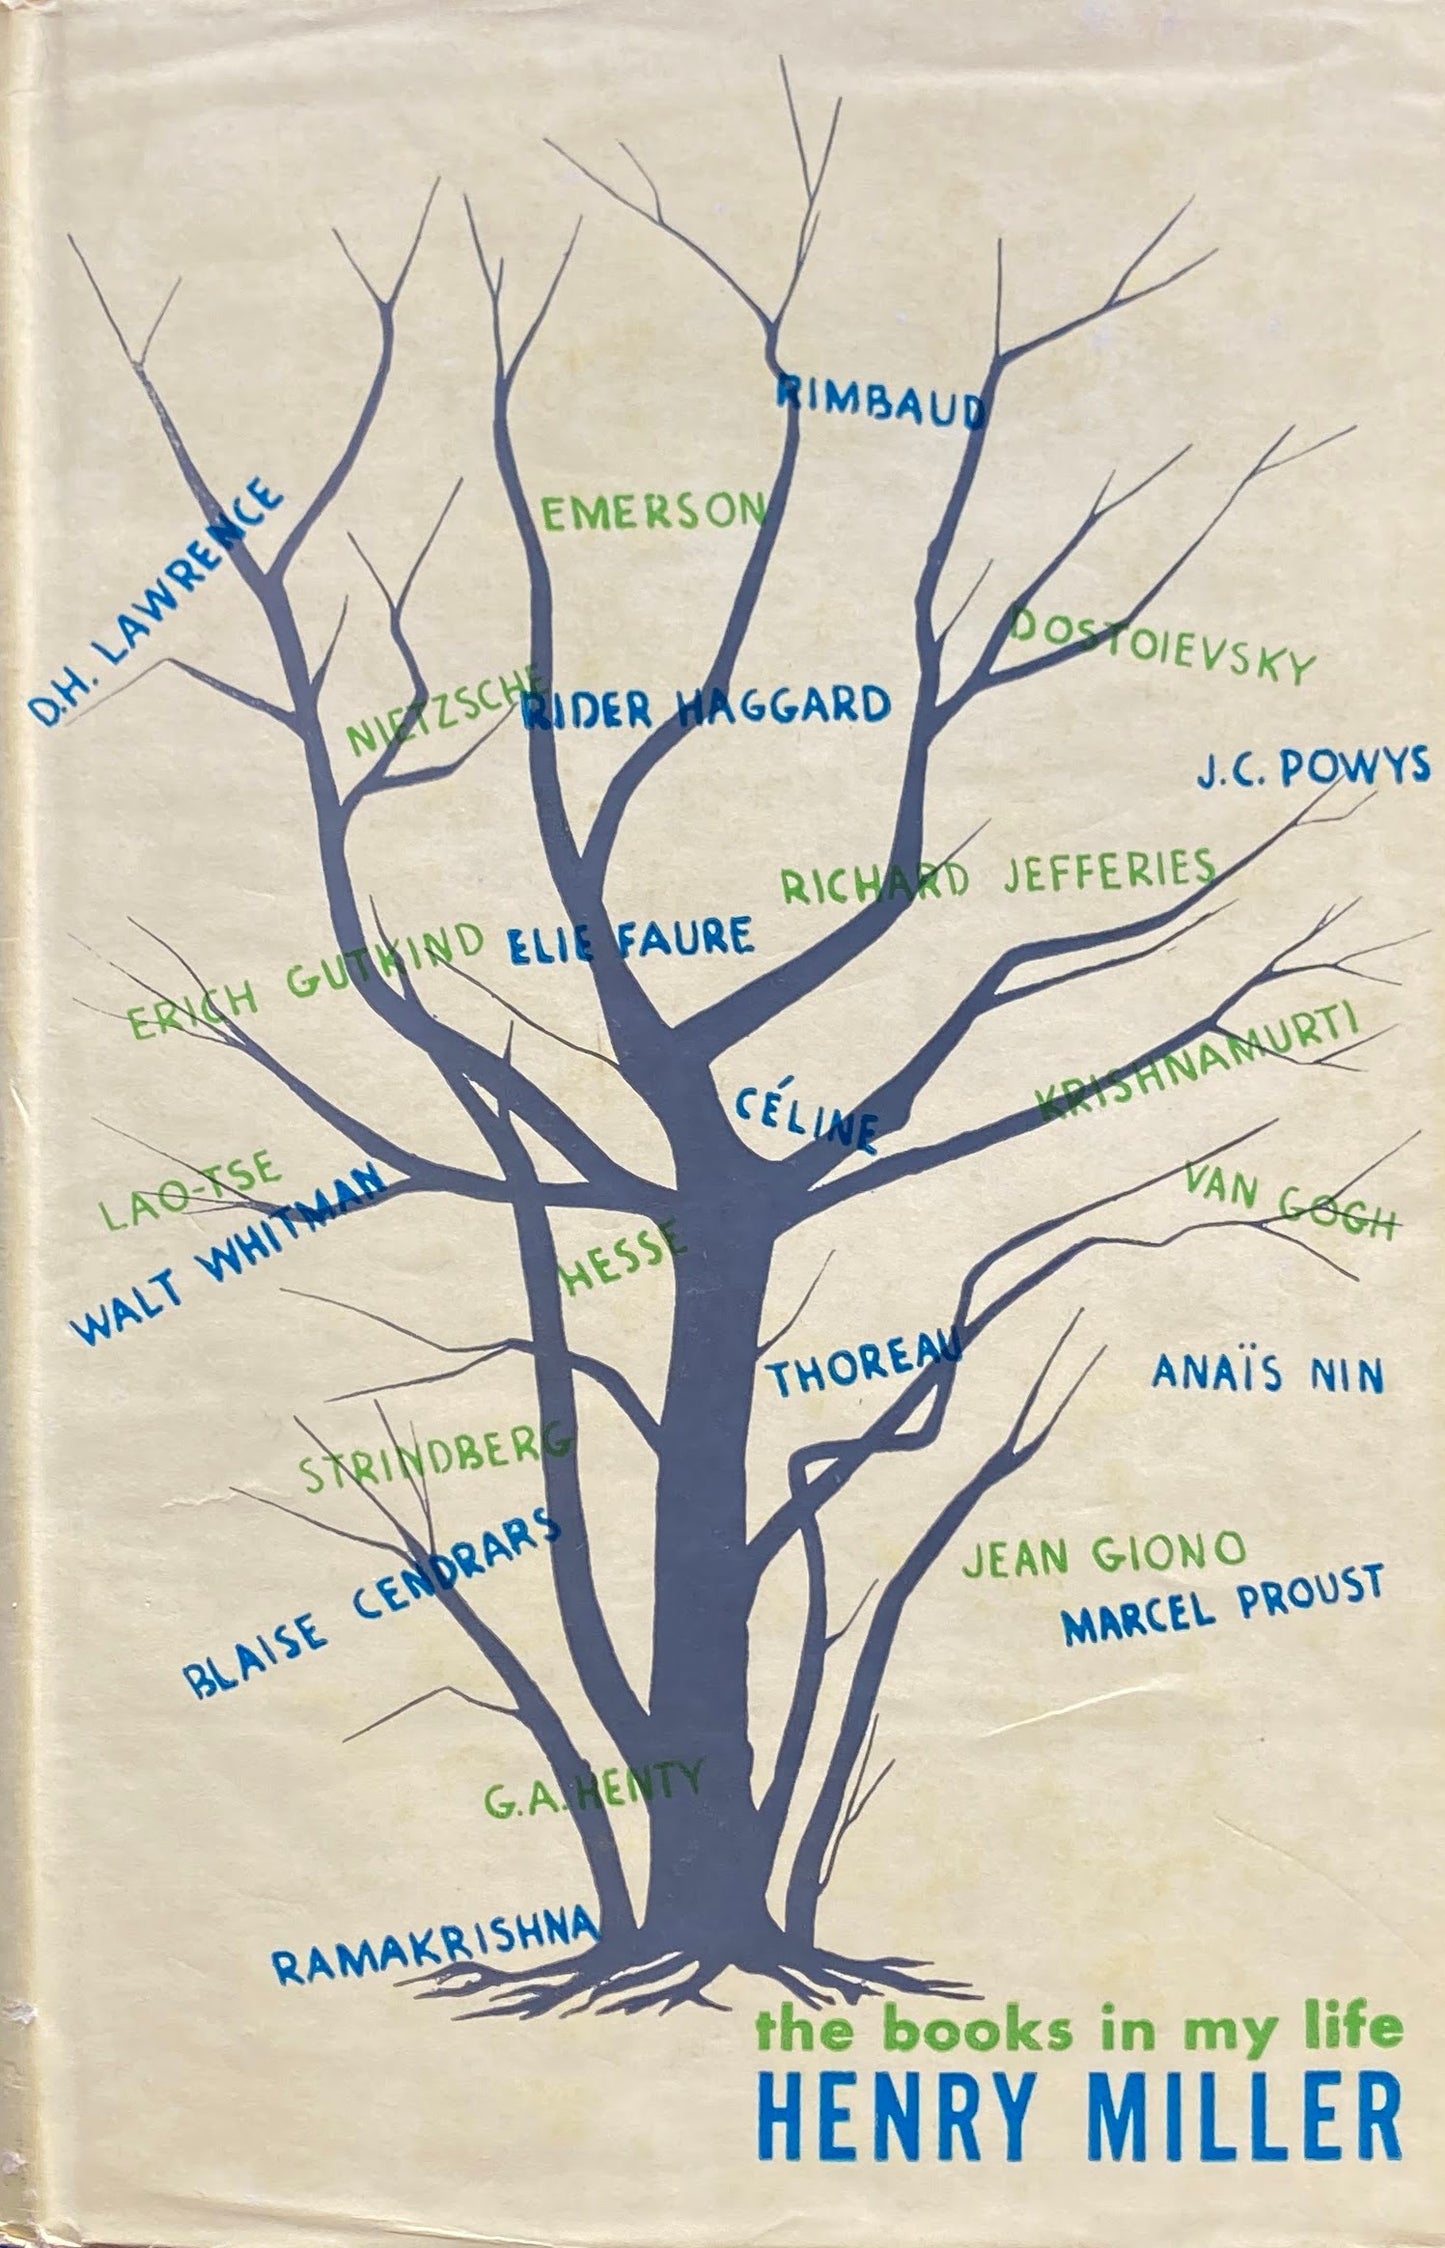 RIMBAUD
D.H. LAWRENCE
EMERSON
DOSTOIEVSKY
NIETZSCHE
RIDER HAGGARD
J.C. POWYS
RICHARD JEFFERIES
ERICH GUTKIND
ELIE FAURE
KRISHNAMURTI
CÉLINE
LAO-TSE
VAN GOGH
WALT WHITMAN
HESSE
THOREAU
ANAÏS NIN
STRINDBERG
JEAN GIONO
BLAISE CENDRARS
MARCEL PROUST
G.A. HENTY
RAMAKRISHNA
the books in my life
HENRY MILLER